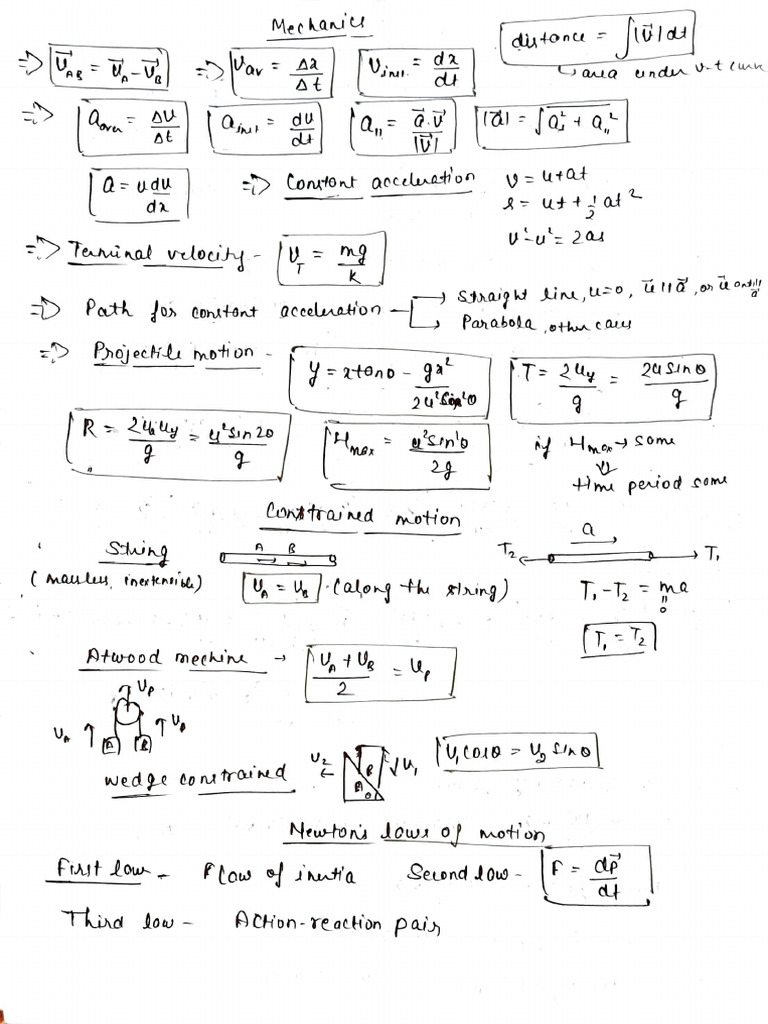 Mechanics
=> V⃗_AB = V⃗_A - V⃗_B => V_av = Δx/Δt V_inst. = dx/dt distance = ∫|V⃗|dt
↳ area under v-t curve
=> a_ave = Δv/Δt a_inst = dv/dt a_|| = a⃗.v⃗/|v⃗| |a⃗| = √(a_⊥² + a_||²)
a = v dv/dx => Constant acceleration v = u+at
s = ut + ½at²
v²-u² = 2as
=> Terminal velocity - V_T = mg/k
=> Path for constant acceleration → Straight line, u=0, u⃗ || a⃗, or u⃗ anti|| a⃗
→ Parabola, other cases
=> Projectile motion - y = x tanθ - gx²/2u²cos²θ T = 2u_y/g = 2u sinθ/g
R = 2u_x u_y/g = u² sin2θ/g H_max = u² sin²θ/2g if H_max → same
⇓
time period same
Constrained motion
String A B a T₂ T₁
(massless, inextensible) V_A = V_B (along the string) T₁-T₂ = ma
= 0
T₁ = T₂
Atwood mechine → V_A + V_B/2 = V_P
V_P
V_A V_B
A B
wedge constrained V₂ B V₁ A θ V₁cosθ = V₂ sinθ
Newton's laws of motion
First law - law of inertia Second law - F = dP⃗/dt
Third law - Action-reaction pair